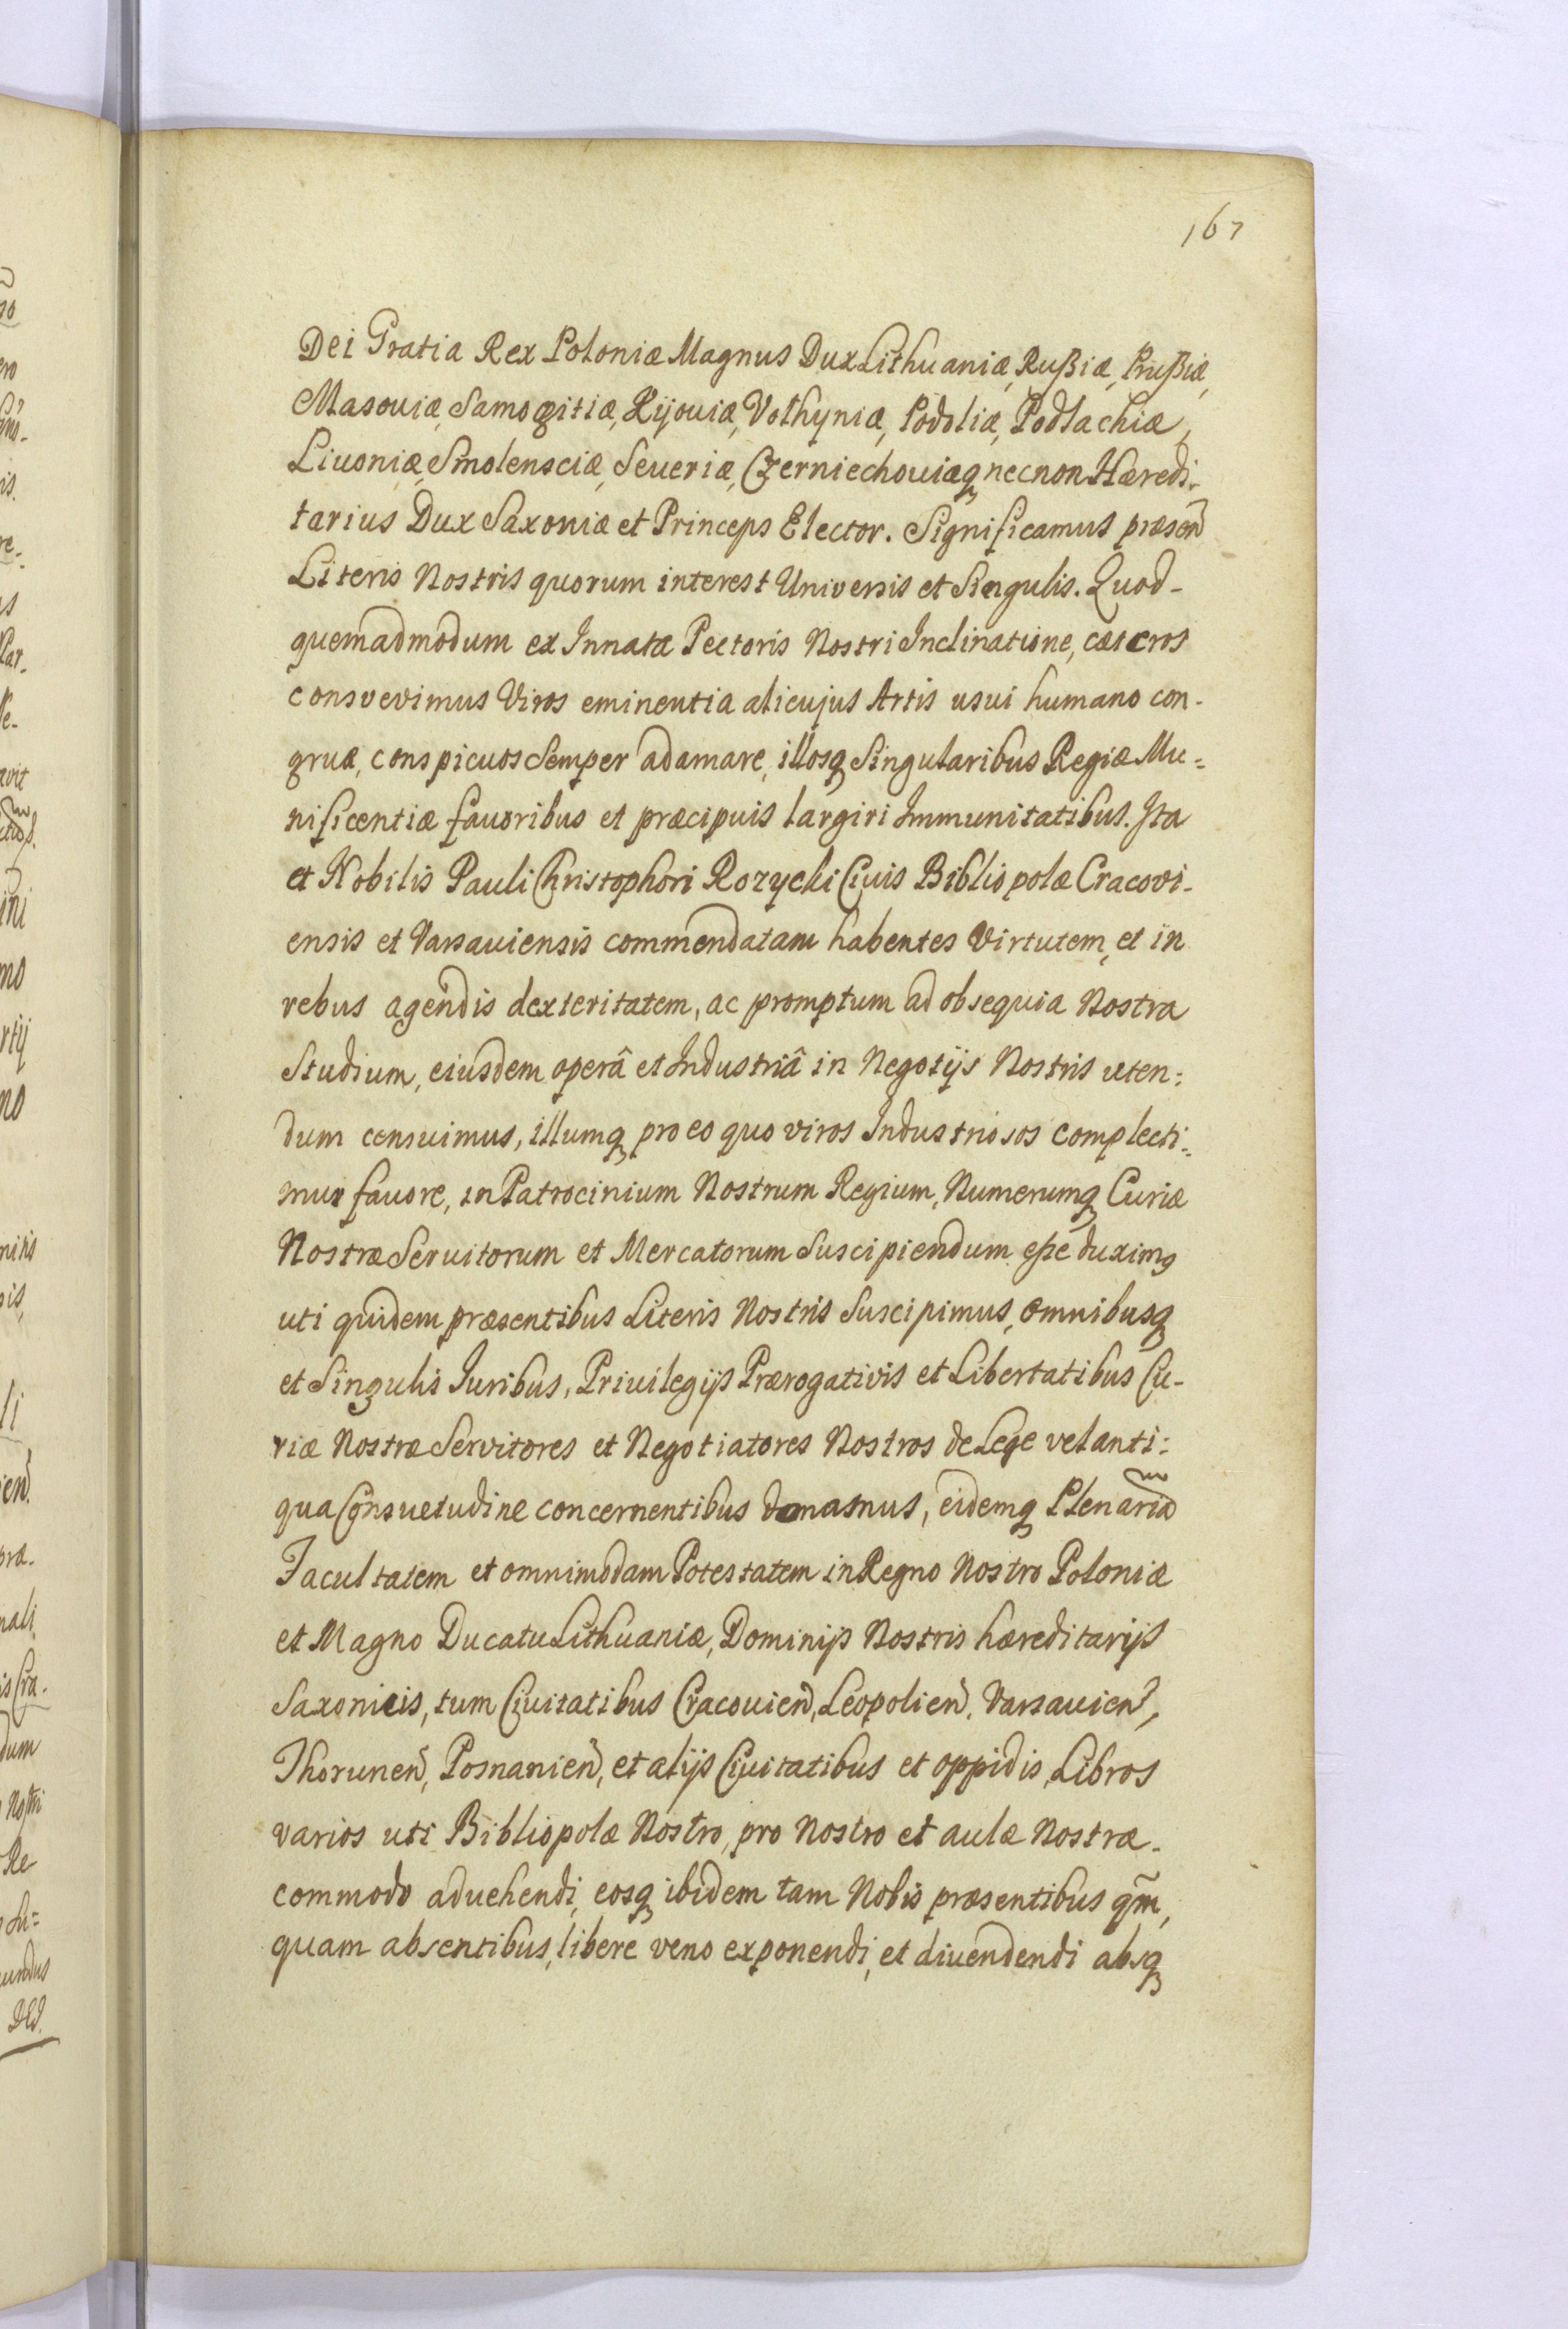 167
Dei Gratia Rex Poloniæ Magnus Dux Lithuaniæ, Rußiæ, Prußiæ,
Masouiæ, Samogitiæ, Kijouiæ, Volhyniæ, Podoliæ, Podlachiæ,
Liuoniæ, Smolensciæ, Seueriæ, Czerniechouiæq, necnon Hæredi-
tarius Dux Saxoniæ et Princeps Elector. Significamus præsen̄
Literis Nostris quorum interest Universis et Singulis. Quod-
quemadmodum ex Innata Pectoris Nostri Inclinatione, cæteros
consvevimus Viros eminentia alicujus Artis usui humano con-
gruæ, conspicuos Semper adamare, illosq Singularibus Regiæ Mu=
nificentiæ fauoribus et præcipuis largiri Immunitatibus. Ita
et Nobilis Pauli Christophori Rozycki Ciuis Bibliopolæ Cracovi-
ensis et Varsauiensis commendatam habentes Virtutem, et in
rebus agendis dexteritatem, ac promptum ad obsequia Nostra
Studium, eiusdem operâ et Industriâ in Negotijs Nostris uten=
dum censuimus, illumq pro eo quo viros Industriosos complecti=
mur fauore, in Patrocinium Nostrum Regium, Numerumq Curiæ
Nostræ Seruitorum et Mercatorum Suscipiendum eße duximꝰ
uti quidem præsentibus Literis Nostris Suscipimus, omnibusq
et Singulis Juribus, Priuilegijs Prærogativis et Libertatibus Cu-
riæ Nostræ Servitores et Negotiatores Nostros de Lege vel anti=
qua Consuetudine concernentibus donamus, eidemq Plenariã
Facultatem et omnimodam Potestatem in Regno Nostro Poloniæ
et Magno Ducatu Lithuaniæ, Dominijs Nostris hæreditarijs
Saxonicis, tum Ciuitatibus Cracouien̄, Leopolien̄, Varsauien̄,
Thorunen̄, Posnanien̄, et alijs Ciuitatibus et oppidis, Libros
varios uti Bibliopolæ Nostro, pro Nostro et aulæ Nostræ-
commodo aduehendi, eosq ibidem tam Nobis præsentibus qm̃,
quam absentibus, libere veno exponendi, et diuendendi absq